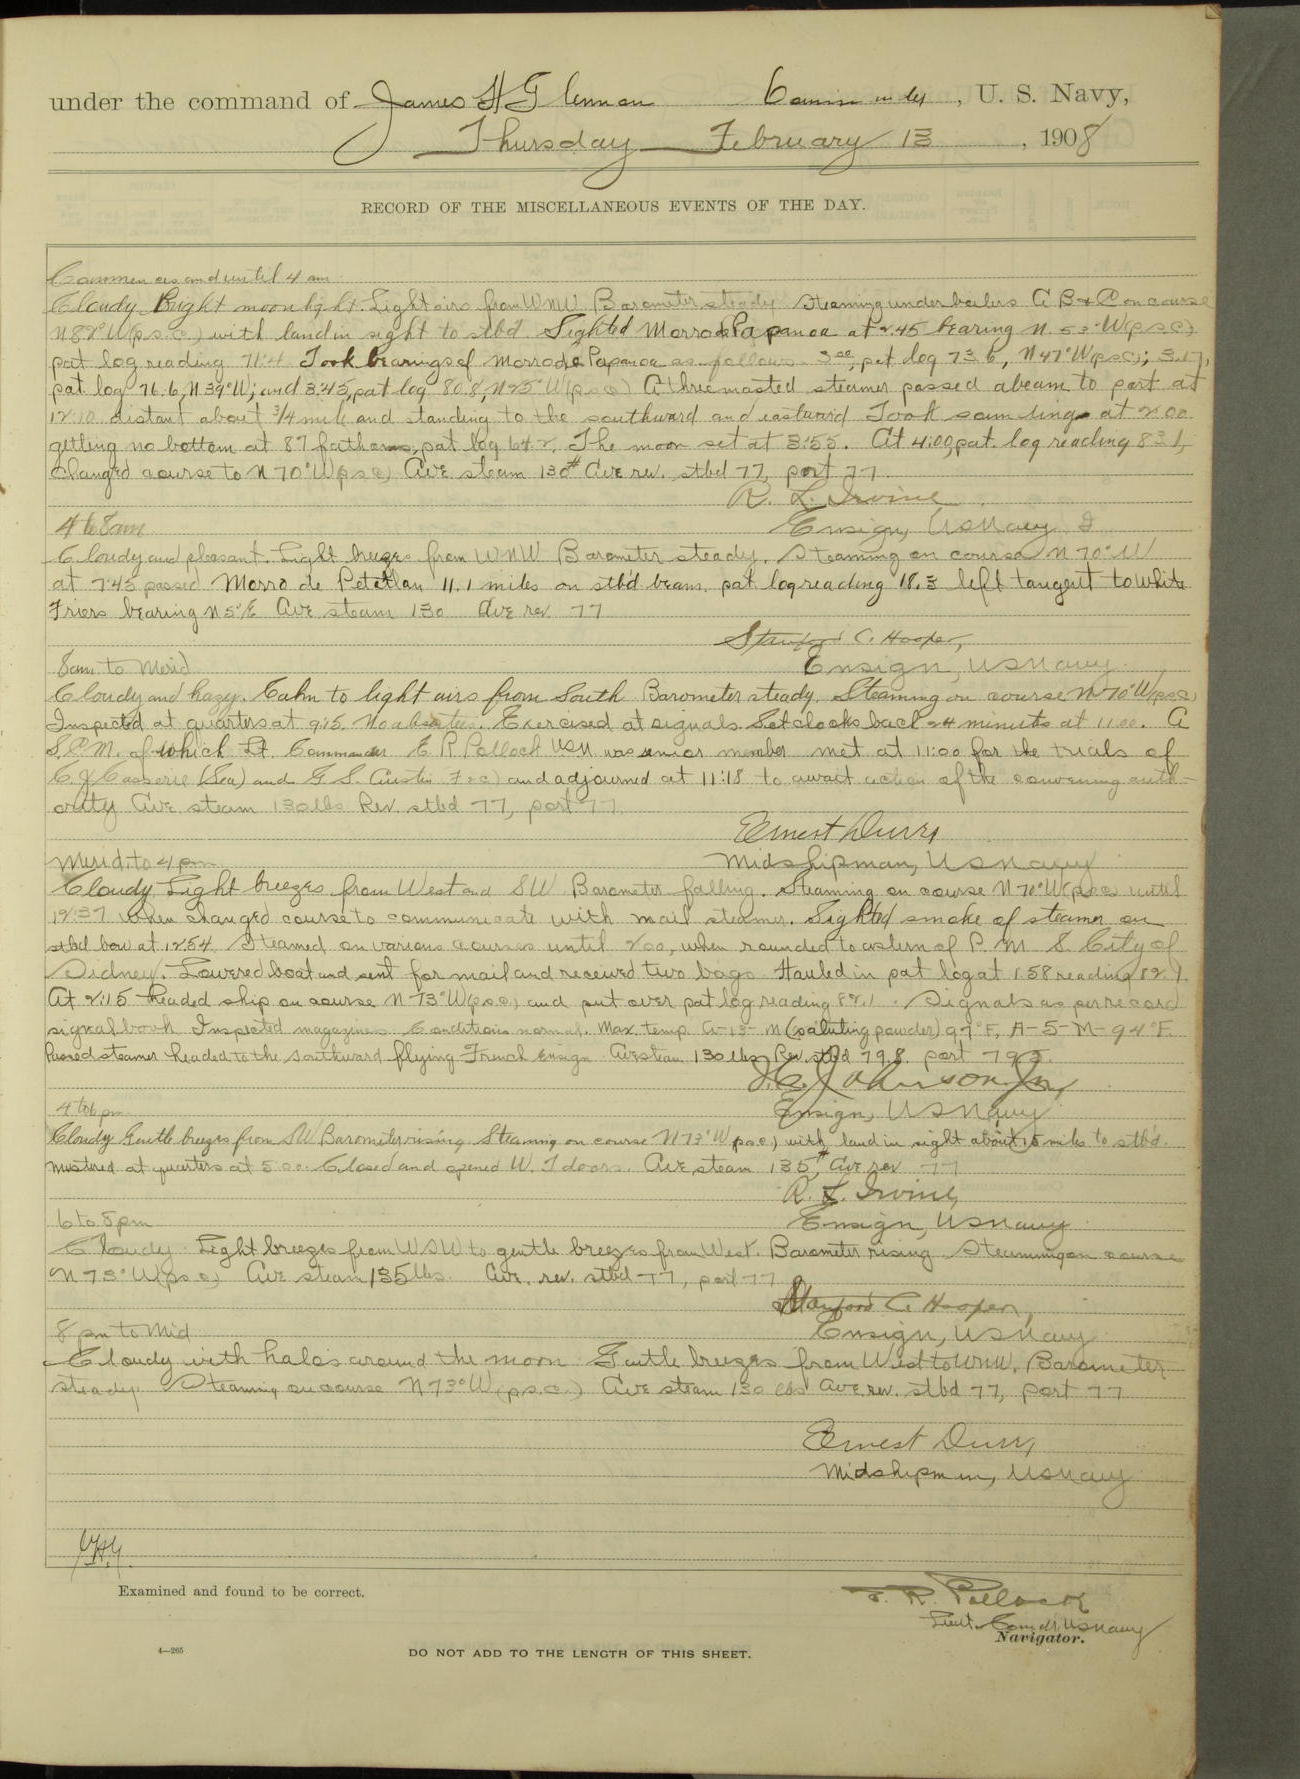 under the command of James H Glennon Commander, U. S. Navy,
Thursday February 13, 1908
RECORD OF THE MISCELLANEOUS EVENTS OF THE DAY.
Commences and until 4 am
Cloudy Bright moonlight. Light airs from WNW. Barometer steady. Steaming under boilers A B & C on course
N 82° W (p.s.c.) with land in sight to stbd. Sighted Morro de Papanoa at 2:45 bearing N. 53° W (p.s.c.)
pat log reading 71.4 Took bearings of Morro de Papanoa as follows 3:00, pat log 73.6, N 47° W (p.s.c.); 3:17,
pat log 76.6, N 39° W; and 3:45, pat log 80.8, N 25° W (p.s.c.) A three masted steamer passed abeam to port at
12:10 distant about 3/4 mile and standing to the southward and eastward Took soundings at 2:00
getting no bottom at 87 fathoms, pat log 64.2. The moon set at 3:55. At 4:00, pat. log reading 83.1,
changed course to N 70° W (p.s.c.) Ave. steam 130# Ave rev. stbd 77, port 77.
R. L. Irvine
Ensign, US Navy
4 to 8 am
Cloudy and pleasant. Light breezes from WNW Barometer steady. Steaming on course N 70° W
at 7:45 passed Morro de Petatlan 11.1 miles on stb'd beam. pat log reading 18.3 left tangent to White
Friers bearing N 5° E Ave steam 130 Ave rev 77
Stanford C. Hooper,
Ensign, US Navy.
8 am. to Merid
Cloudy and hazy. Calm to light airs from South Barometer steady. Steaming on course N 70° W (p.s.c.)
Inspected at quarters at 9:15. No absentees. Exercised at signals. Set clocks back 24 minutes at 11:00. A
S.C.M. of which Lt. Commander E R Pollock USN was senior member met at 11:00 for the trials of
C. J. Casserie (Sea) and G. S. Austin F 2 c) and adjourned at 11:18 to await action of the convening auth-
ority Ave. steam 130 lbs Rev. stbd 77, port 77.
Ernest Durr,
Midshipman, US Navy
Merid. to 4 pm
Cloudy Light breezes from West and SW Barometer falling. Steaming on course N 70° W (p.s.c.) until
12:37 when changed course to communicate with mail steamer. Sighted smoke of steamer on
stbd bow at 12:54 Steamed on various courses until 2:00, when rounded to astern of P. M. S. City of
Sidney. Lowered boat and sent for mail and received two bags Hauled in pat log at 1:58 reading 82.1.
At 2:15 headed ship on course N 73° W (p.s.c.) and put over pat log reading 82.1. Signals as per record
signal book Inspected magazines Conditions normal. Max. temp. A-13-M (saluting powder) 97° F, A-5-M-94° F.
Passed steamer headed to the southward flying French Ensign Ave steam 130 lbs Rev. stbd 79.8 port 79.5
J. C. Johnson Jr,
Ensign, US Navy
4 to 6 pm
Cloudy Gentle breezes from SW Barometer rising. Steaming on course N 73° W p.s.c.) with land in sight about 15 miles to stb'd.
Mustered at quarters at 5:00. Closed and opened W. T doors. Ave steam 135#, Ave rev 77
R. L. Irvine,
Ensign, US Navy
6 to 8 pm
Cloudy Light breezes from WSW to gentle breezes from West. Barometer rising. Steaming on course
N 73° W (p.s.c.) Ave steam 135 lbs. Ave. rev. stbd 77, port 77
Stanford C. Hooper,
Ensign, US Navy
8 pm to Mid
Cloudy with halos around the moon Gentle breezes from West to WNW. Barometer
steady. Steaming on course N 73° W (p.s.c.) Ave steam 130 lbs Ave rev. stbd 77, port 77
Ernest Durr,
Midshipman, US Navy
Examined and found to be correct.
E. R. Pollock
Lieut. Comdr, US Navy
Navigator.
4—265
DO NOT ADD TO THE LENGTH OF THIS SHEET.